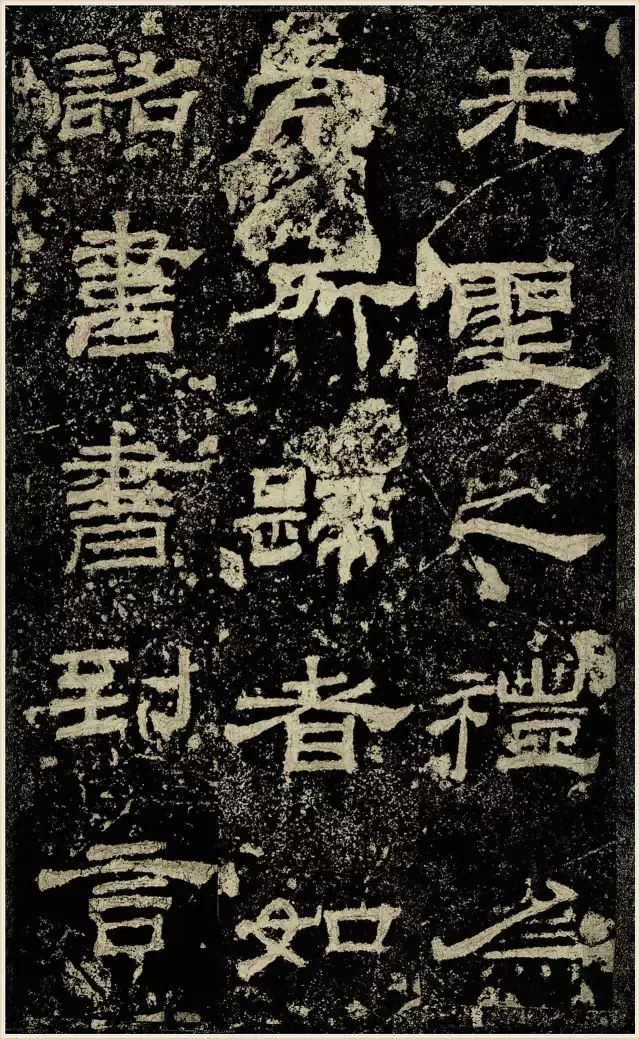 先聖之禮為
所歸者如
詔書書到言